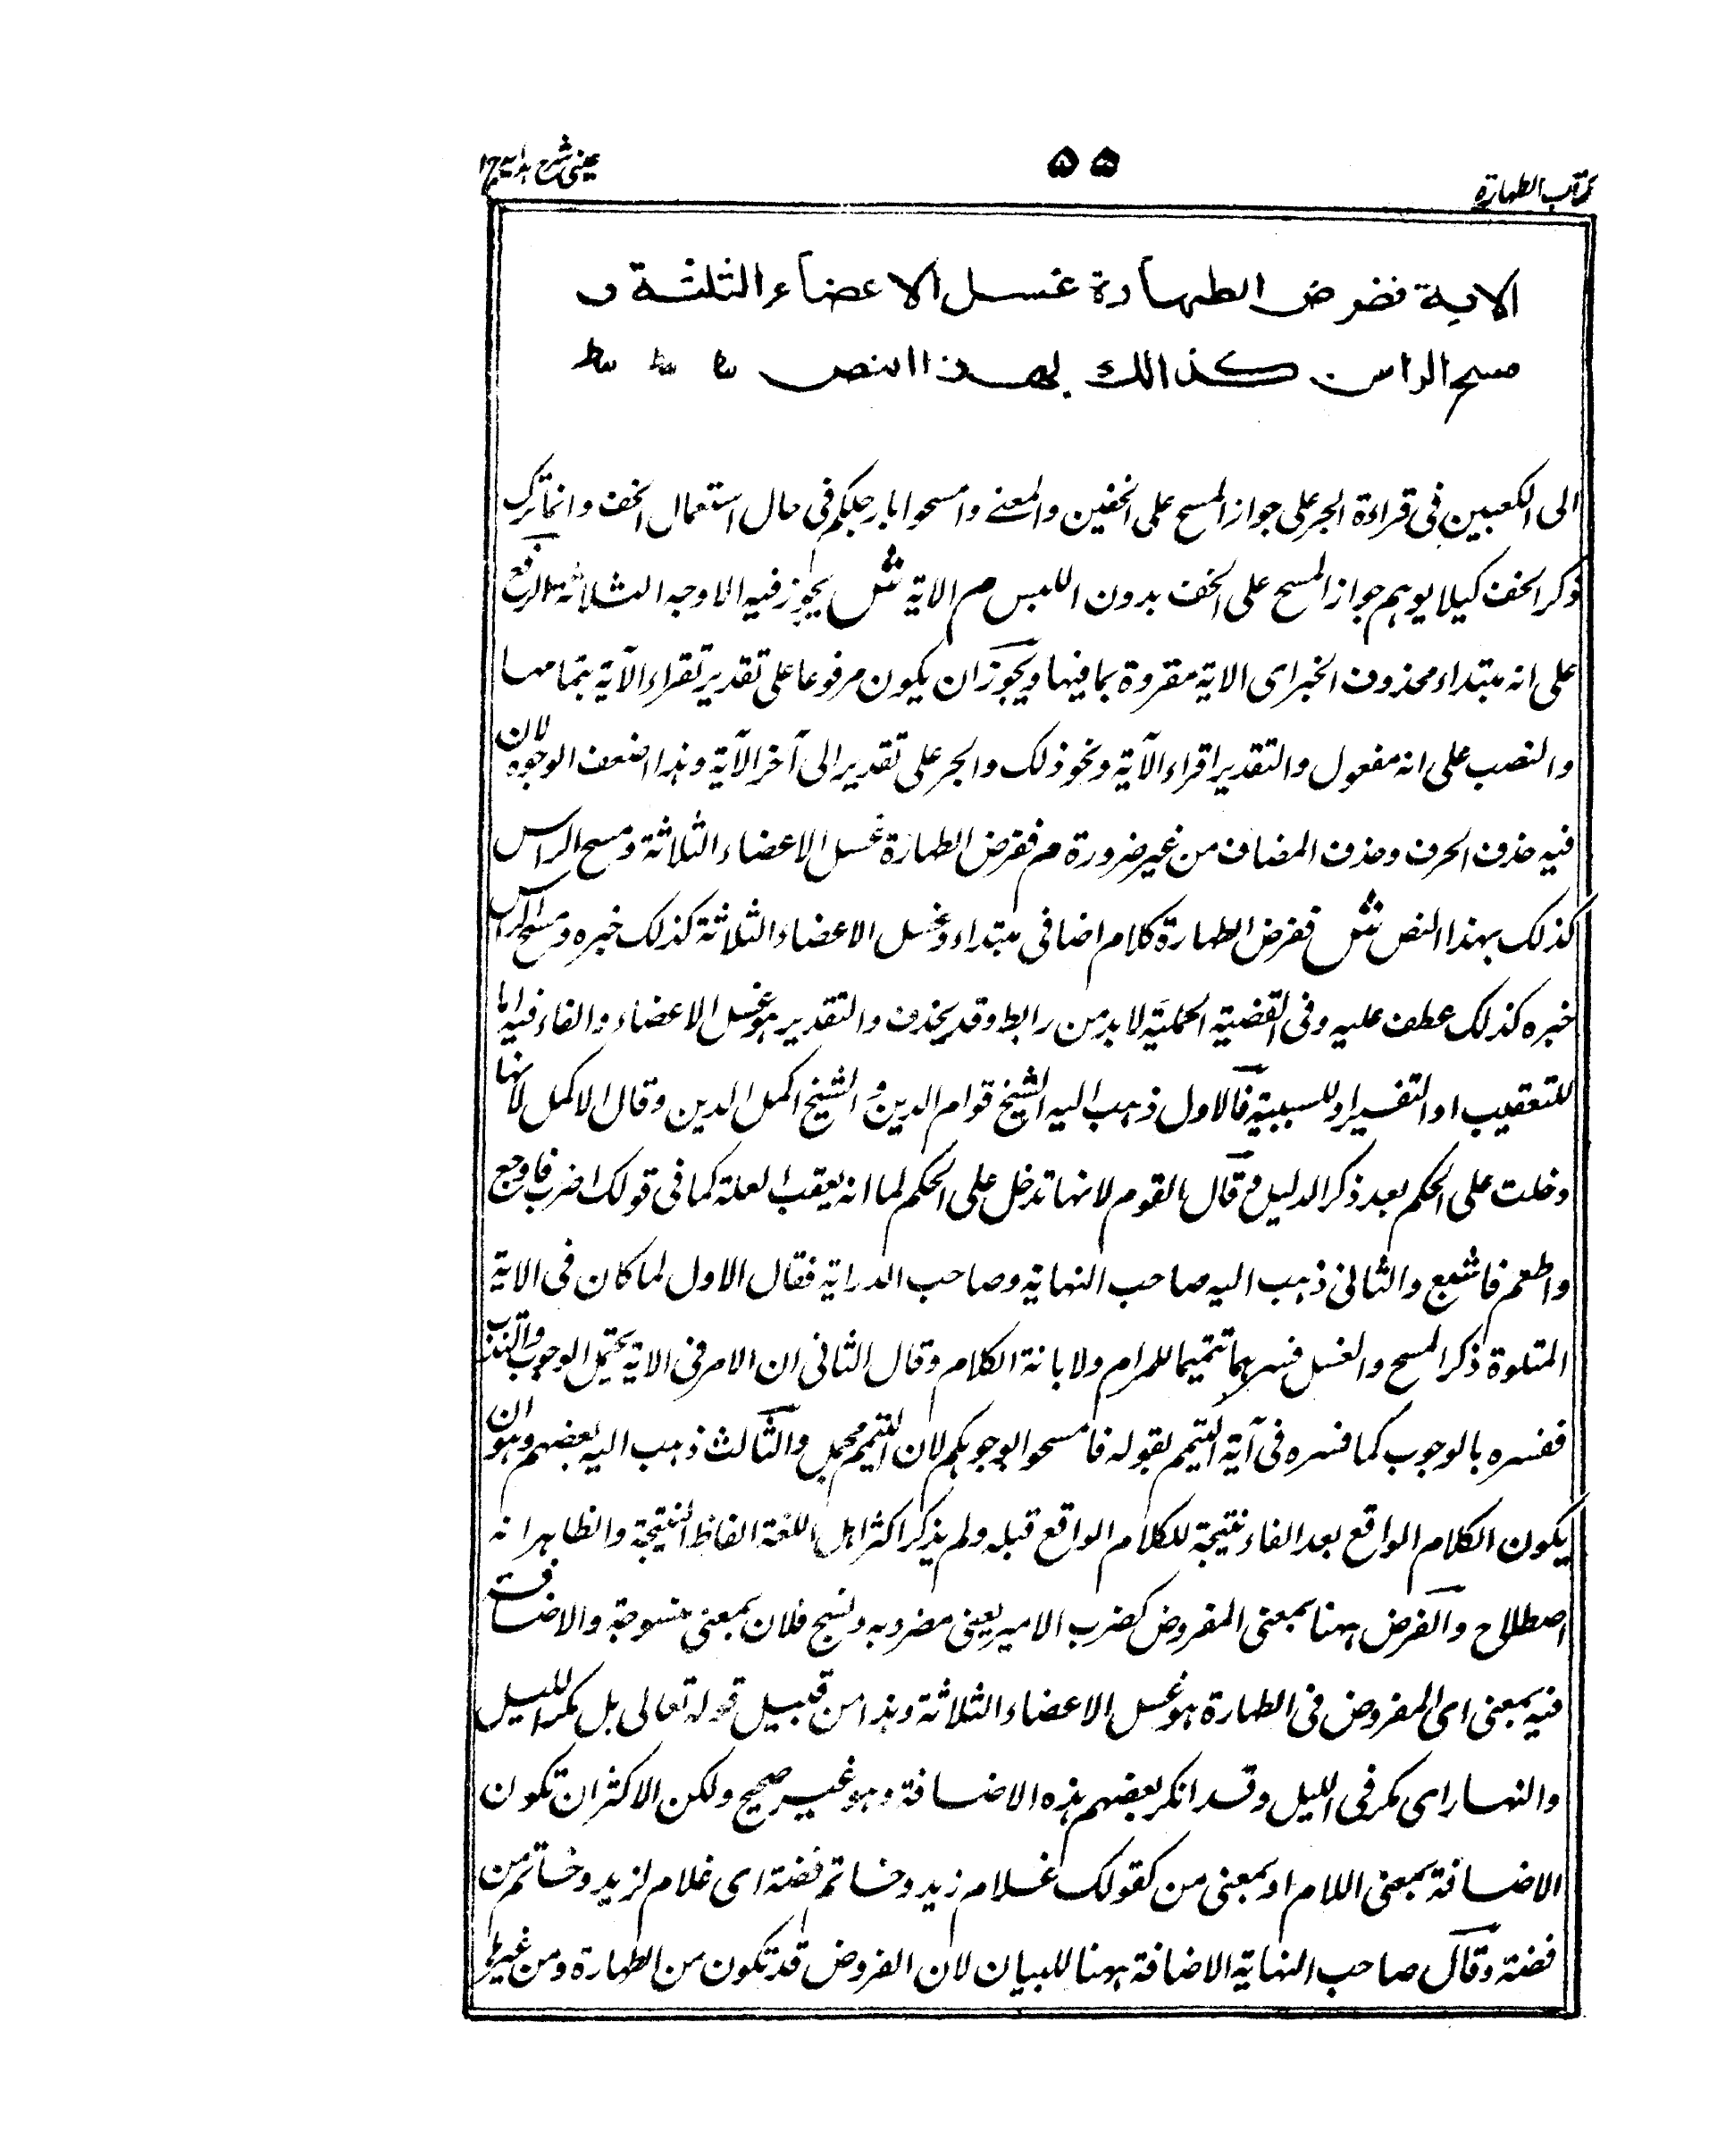 كتاب الطهارة
۵۵
عینی شرح هدایة ج ١
الاية ففرض الطهارة غسل الاعضاء الثلثة و
مسح الراس كذالك بهذا النص
الى الكعبين فى قراءة الجر على جواز المسح على الخفين والمعنے وامسحوا بارجلكم فى حال استعمال الخف وانما ترك
ذكر الخف كيلا يوهم جواز المسح على الخف بدون اللبس م الاية ش يجوز فيه الاوجه الثلاثة الرفع
على انه مبتداء محذوف الخبر اى الاية مقروة بما فيها ويجوز ان يكون مرفوعا على تقدير تقراء الآية بتمامها
والنصب على انه مفعول والتقدير اقراء الآية ونحو ذلك والجر على تقدير الى آخر الآية وهذا اضعف الوجوه لان
فيه حذف الحرف وحذف المضاف من غير ضرورة م ففرض الطهارة غسل الاعضاء الثلاثة ومسح الراس
كذلك بهذا النص ش ففرض الطهارة كلام اضافى مبتداء وغسل الاعضاء الثلاثة كذلك خبره ومسح الراس
خبره كذلك عطف عليه وفى القضية الحملية لا بد من رابط وقد يحذف والتقدير هو غسل الاعضاء والفاء فيه اما
للتعقيب او التفسير او للسببية فالاول ذهب اليه الشيخ قوام الدين و الشيخ اكمل الدين وقال الاكمل لانها
دخلت على الحكم بعد ذكر الدليل و قال القوم لانها تدخل على الحكم لما انه يعقب العلة كما فى قولك اضرب فاوجع
واطعم فاشبع والثانى ذهب اليه صاحب النهاية وصاحب الدراية فقال الاول لما كان فى الاية
المتلوة ذكر المسح والغسل فسرهما تتميما للمرام ولابانة الكلام وقال الثانى ان الامر فى الاية يحتمل الوجوب والندب
ففسره بالوجوب كما فسره فى آية التيمم بقوله فامسحوا بوجوهكم لان التيمم مجمل والثالث ذهب اليه بعضهم وهو ان
يكون الكلام الواقع بعد الفاء نتيجة للكلام الواقع قبله ولم يذكر اكثر اهل اللغة الفاظ النتيجة والظاهر انه
اصطلاح والفرض ههنا بمعنى المفروض كضرب الامير يعنى مضروبه ونسج فلان بمعنى منسوجة والاضافة
فيه بمعنى اى المفروض فى الطهارة هو غسل الاعضاء الثلاثة وهذا من قبيل قوله تعالى بل مكر الليل
والنهار اى مكر فى الليل وقد انكر بعضهم هذه الاضافة وهو غير صحيح ولكن الاكثر ان تكون
الاضافة بمعنى اللام او بمعنى من كقولك غلام زيد وخاتم فضة اى غلام لزيد وخاتم من
فضة وقال صاحب النهاية الاضافة ههنا للبيان لان الفروض قد تكون من الطهارة ومن غيرها